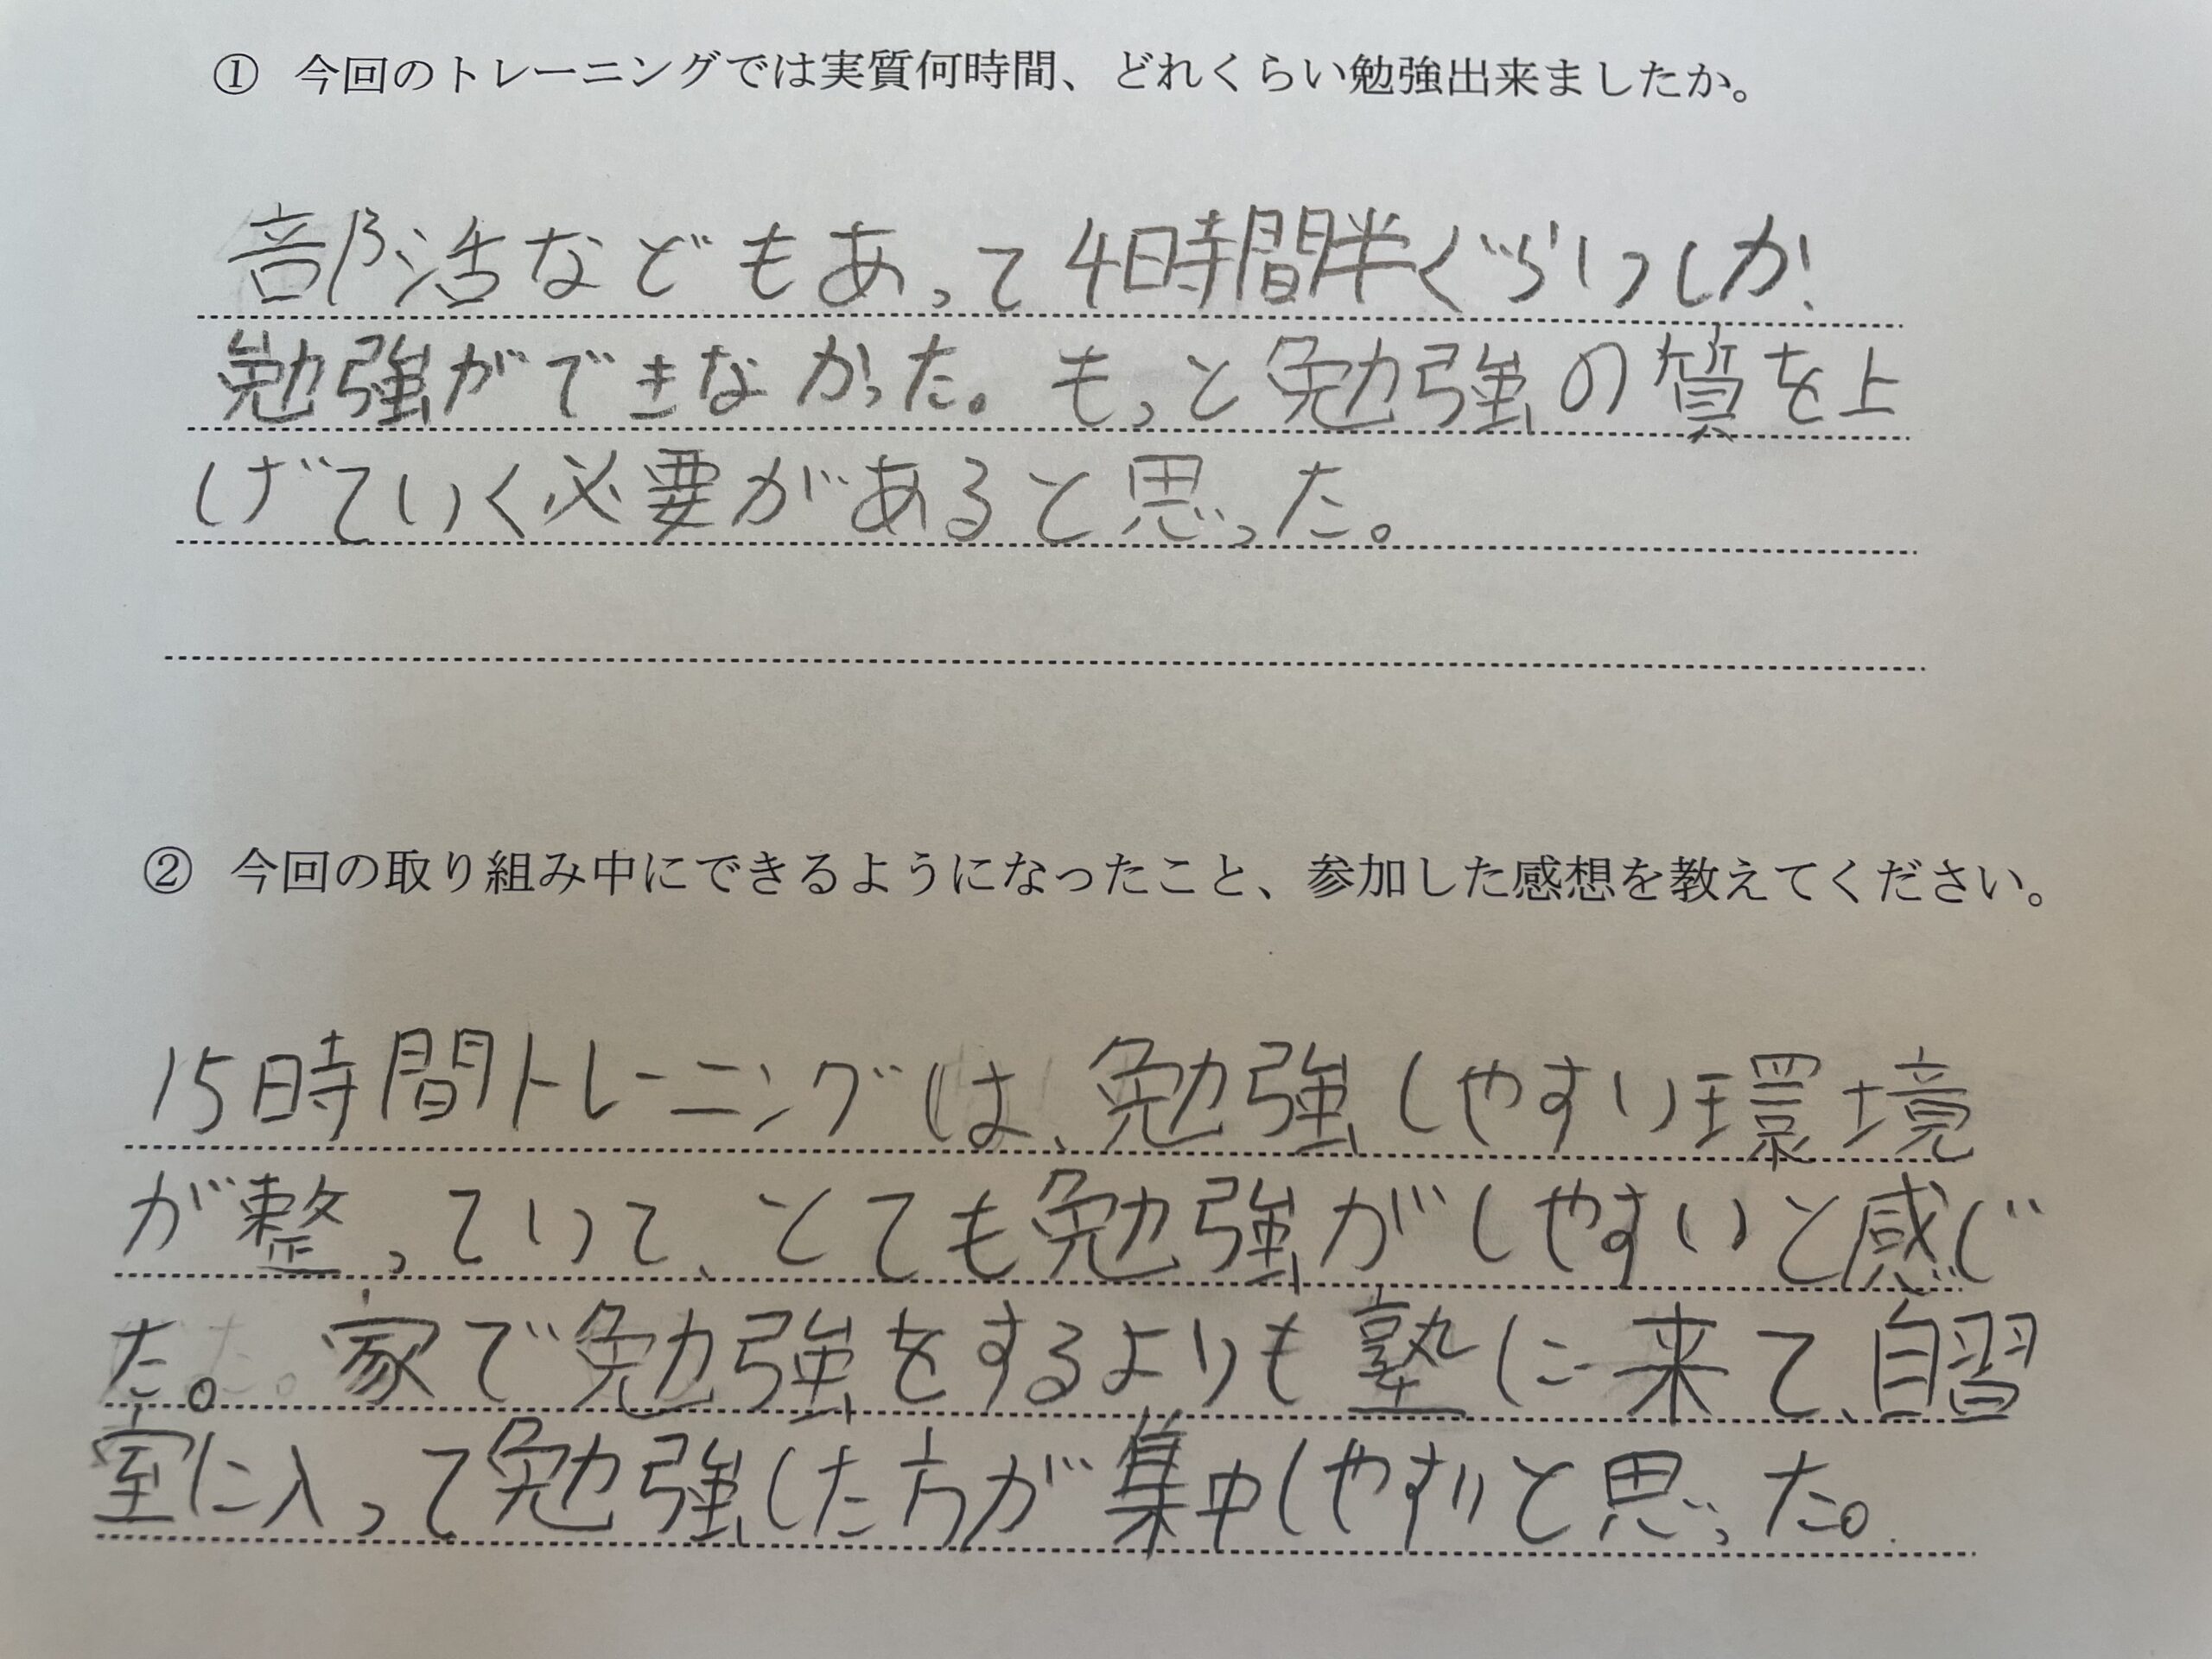 ① 今回のトレーニングでは実質何時間、どれくらい勉強出来ましたか。
部活などもあって4時間半ぐらいしか
勉強ができなかった。もっと勉強の質を上
げていく必要があると思った。
② 今回の取り組み中にできるようになったこと、参加した感想を教えてください。
15時間トレーニングは、勉強しやすい環境
が整っていて、とても勉強がしやすいと感じ
た。家で勉強をするよりも塾に来て、自習
室に入って勉強した方が集中しやすいと思った。